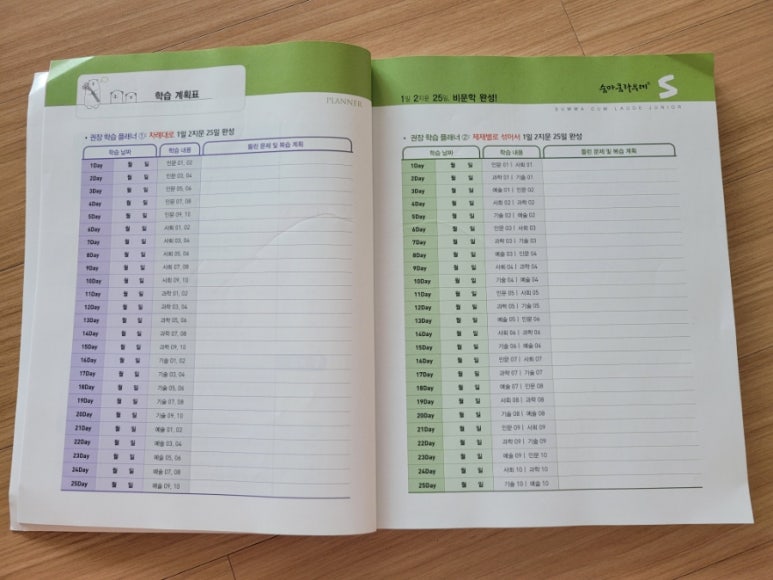 학습 계획표
PLANNER
• 권장 학습 플래너 ①: 차례대로 1일 2지문 25일 완성
학습 날짜 학습 내용 틀린 문제 및 복습 계획
1Day 월 일 인문 01, 02
2Day 월 일 인문 03, 04
3Day 월 일 인문 05, 06
4Day 월 일 인문 07, 08
5Day 월 일 인문 09, 10
6Day 월 일 사회 01, 02
7Day 월 일 사회 03, 04
8Day 월 일 사회 05, 06
9Day 월 일 사회 07, 08
10Day 월 일 사회 09, 10
11Day 월 일 과학 01, 02
12Day 월 일 과학 03, 04
13Day 월 일 과학 05, 06
14Day 월 일 과학 07, 08
15Day 월 일 과학 09, 10
16Day 월 일 기술 01, 02
17Day 월 일 기술 03, 04
18Day 월 일 기술 05, 06
19Day 월 일 기술 07, 08
20Day 월 일 기술 09, 10
21Day 월 일 예술 01, 02
22Day 월 일 예술 03, 04
23Day 월 일 예술 05, 06
24Day 월 일 예술 07, 08
25Day 월 일 예술 09, 10
1일 2지문 25일, 비문학 완성!
숨마쿰라우데® S
SUMMA CUM LAUDE JUNIOR
• 권장 학습 플래너 ②: 제재별로 섞어서 1일 2지문 25일 완성
학습 날짜 학습 내용 틀린 문제 및 복습 계획
1Day 월 일 인문 01 | 사회 01
2Day 월 일 과학 01 | 기술 01
3Day 월 일 예술 01 | 인문 02
4Day 월 일 사회 02 | 과학 02
5Day 월 일 기술 02 | 예술 02
6Day 월 일 인문 03 | 사회 03
7Day 월 일 과학 03 | 기술 03
8Day 월 일 예술 03 | 인문 04
9Day 월 일 사회 04 | 과학 04
10Day 월 일 기술 04 | 예술 04
11Day 월 일 인문 05 | 사회 05
12Day 월 일 과학 05 | 기술 05
13Day 월 일 예술 05 | 인문 06
14Day 월 일 사회 06 | 과학 06
15Day 월 일 기술 06 | 예술 06
16Day 월 일 인문 07 | 사회 07
17Day 월 일 과학 07 | 기술 07
18Day 월 일 예술 07 | 인문 08
19Day 월 일 사회 08 | 과학 08
20Day 월 일 기술 08 | 예술 08
21Day 월 일 인문 09 | 사회 09
22Day 월 일 과학 09 | 기술 09
23Day 월 일 예술 09 | 인문 10
24Day 월 일 사회 10 | 과학 10
25Day 월 일 기술 10 | 예술 10